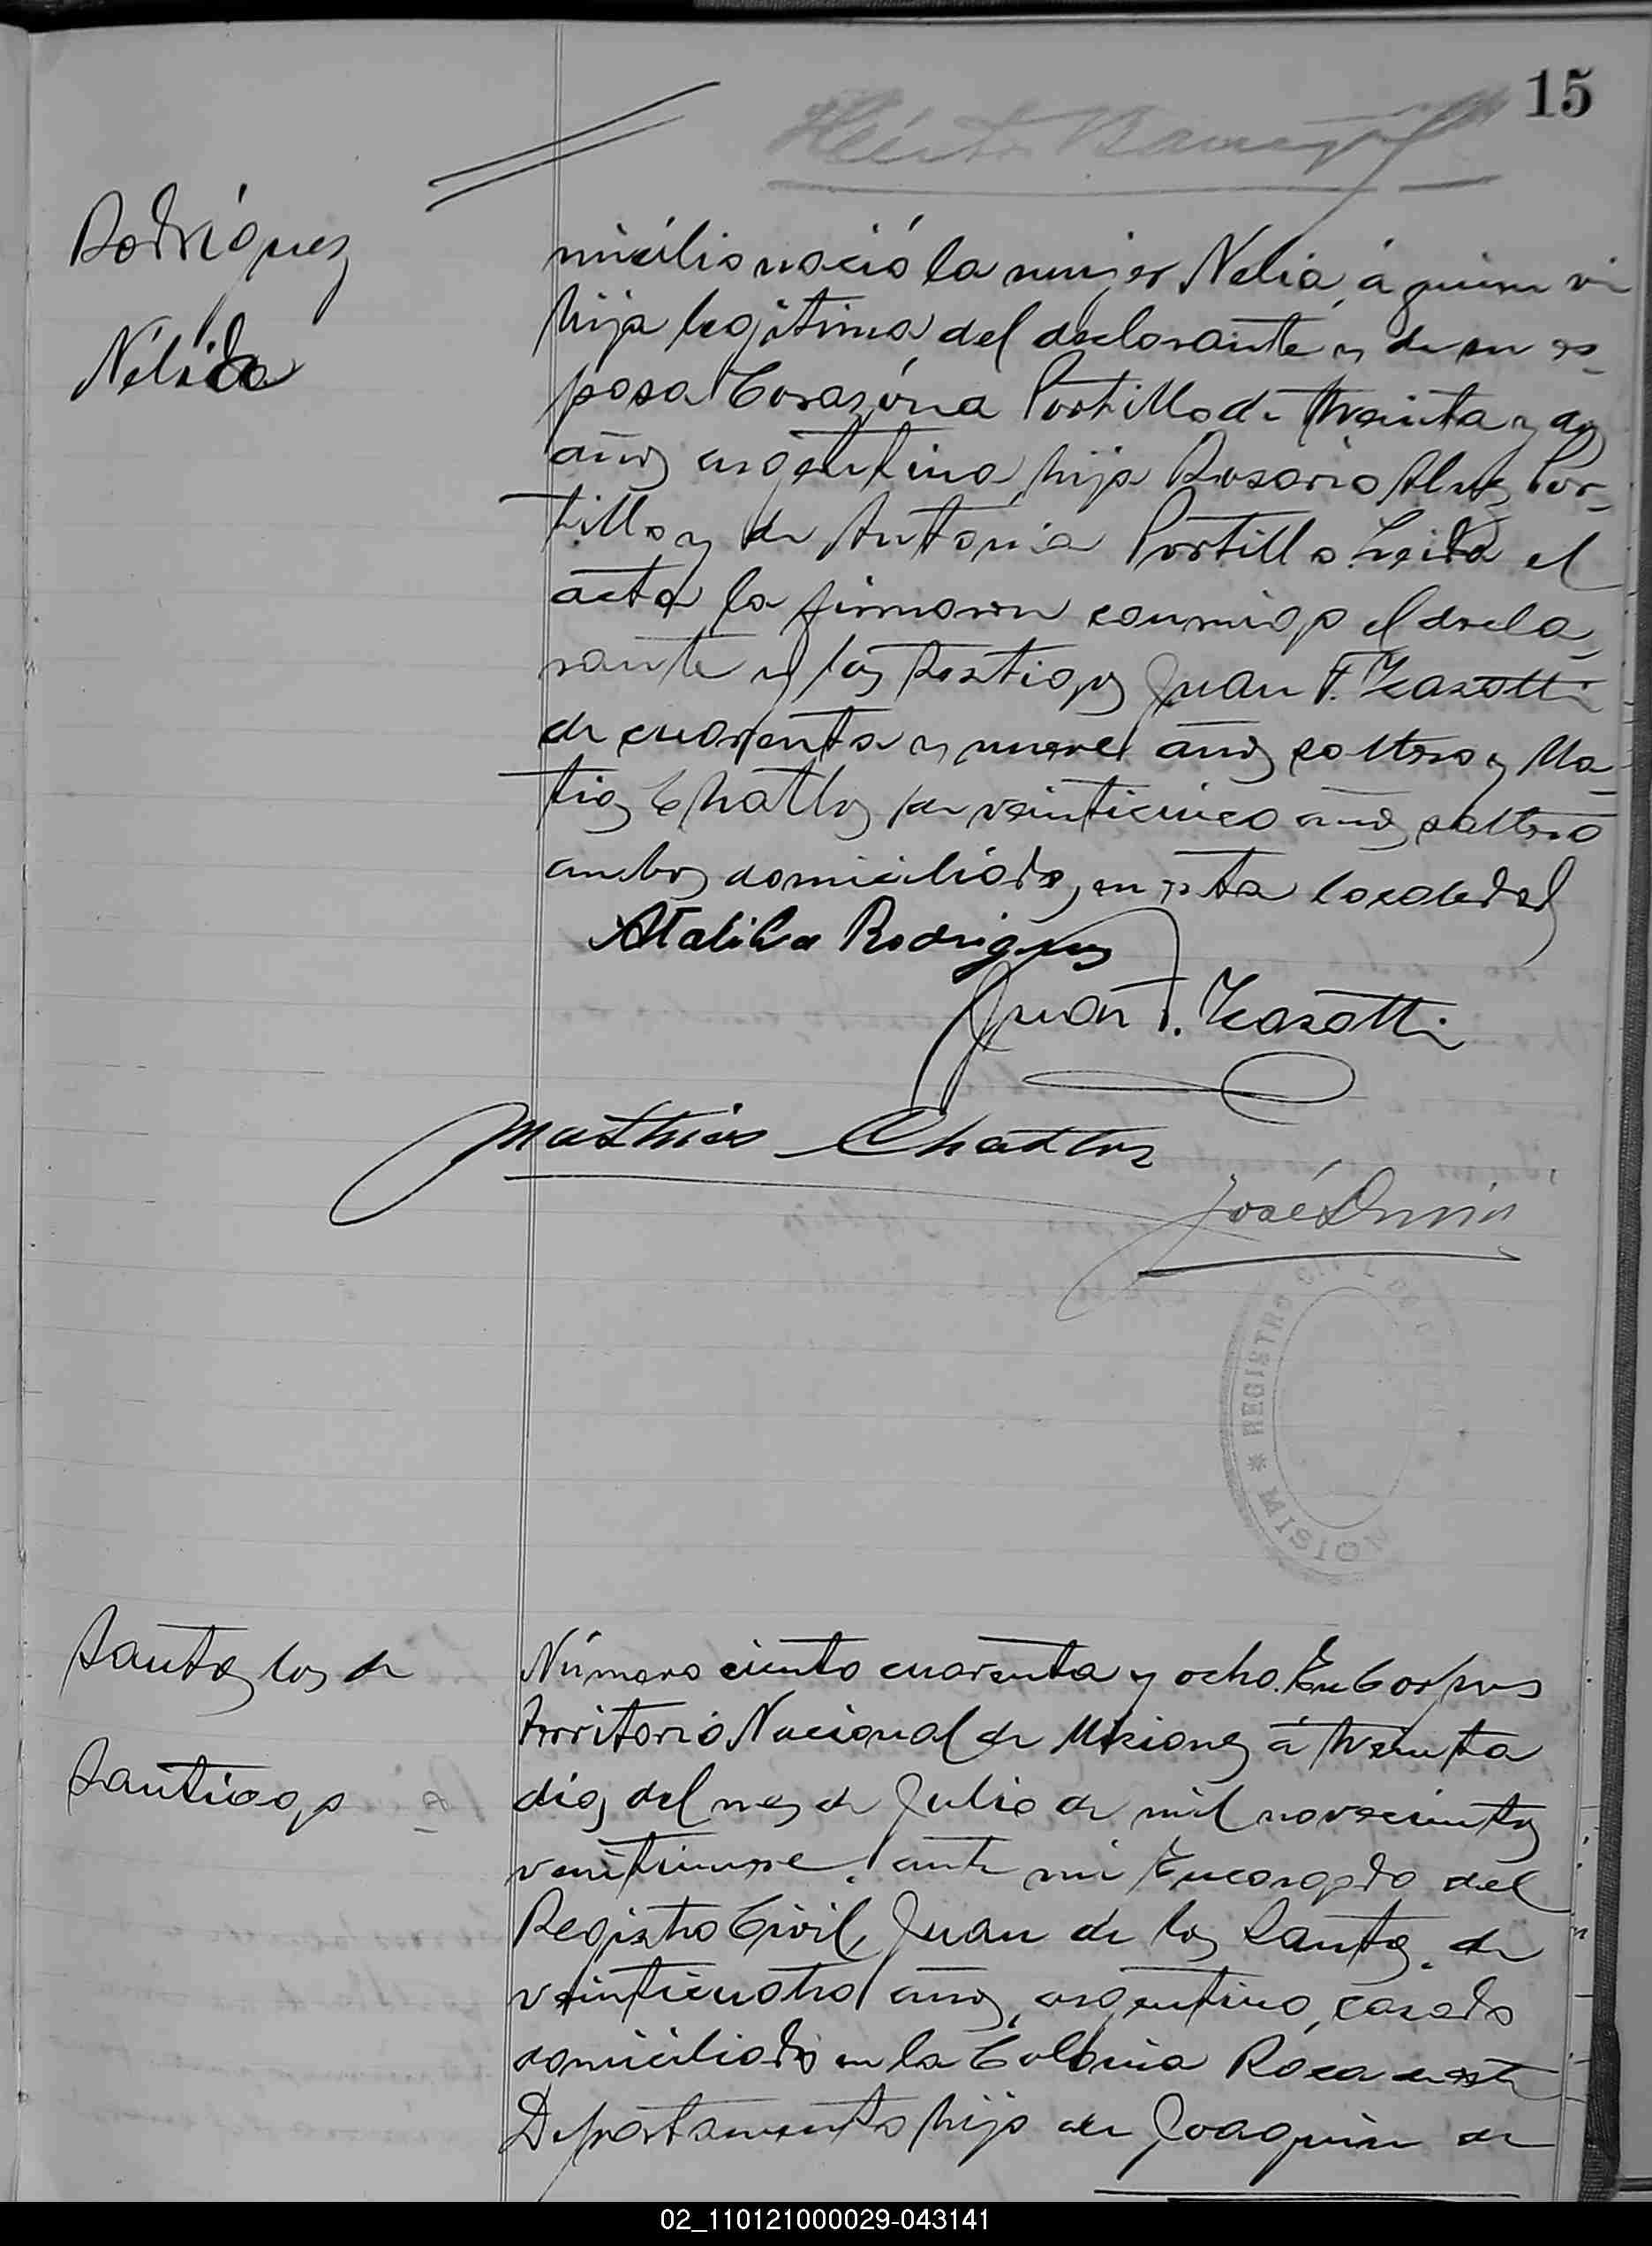 15
Rodríguez
Nélida
micilio nació la mujer Nelia, á quien vi
hija legítima del declarante y de su es-
posa Corazóna Portillo de treinta y dos
años argentina, hija Rosario Portillo
tillo y de Antonia Portillo. Leida el
acta la firmaron conmigo el decla-
rante y los testigos Juan F. Zasotti
de cuarenta y nueve años soltero y Ma-
tias Chatlos de veinticinco años soltero
ambos domiciliados en esta localidad
Ataliba Rodriguez
Juan F. Zasotti
Mathias Chatlos
José
REGISTRO CIVIL
MISION
Santos, los de
Santiago
Número ciento cuarenta y ocho. En Corpus
Territorio Nacional de Misiones á treinta
dias del mes de Julio de mil novecientos
veintinueve. ante mi Encargado del
Registro Civil, Juan de los Santos de
veinticuatro años, argentino, casado
domiciliado en la Colonia Roca de este
Departamento hijo de Joaquin de
02_110121000029-043141